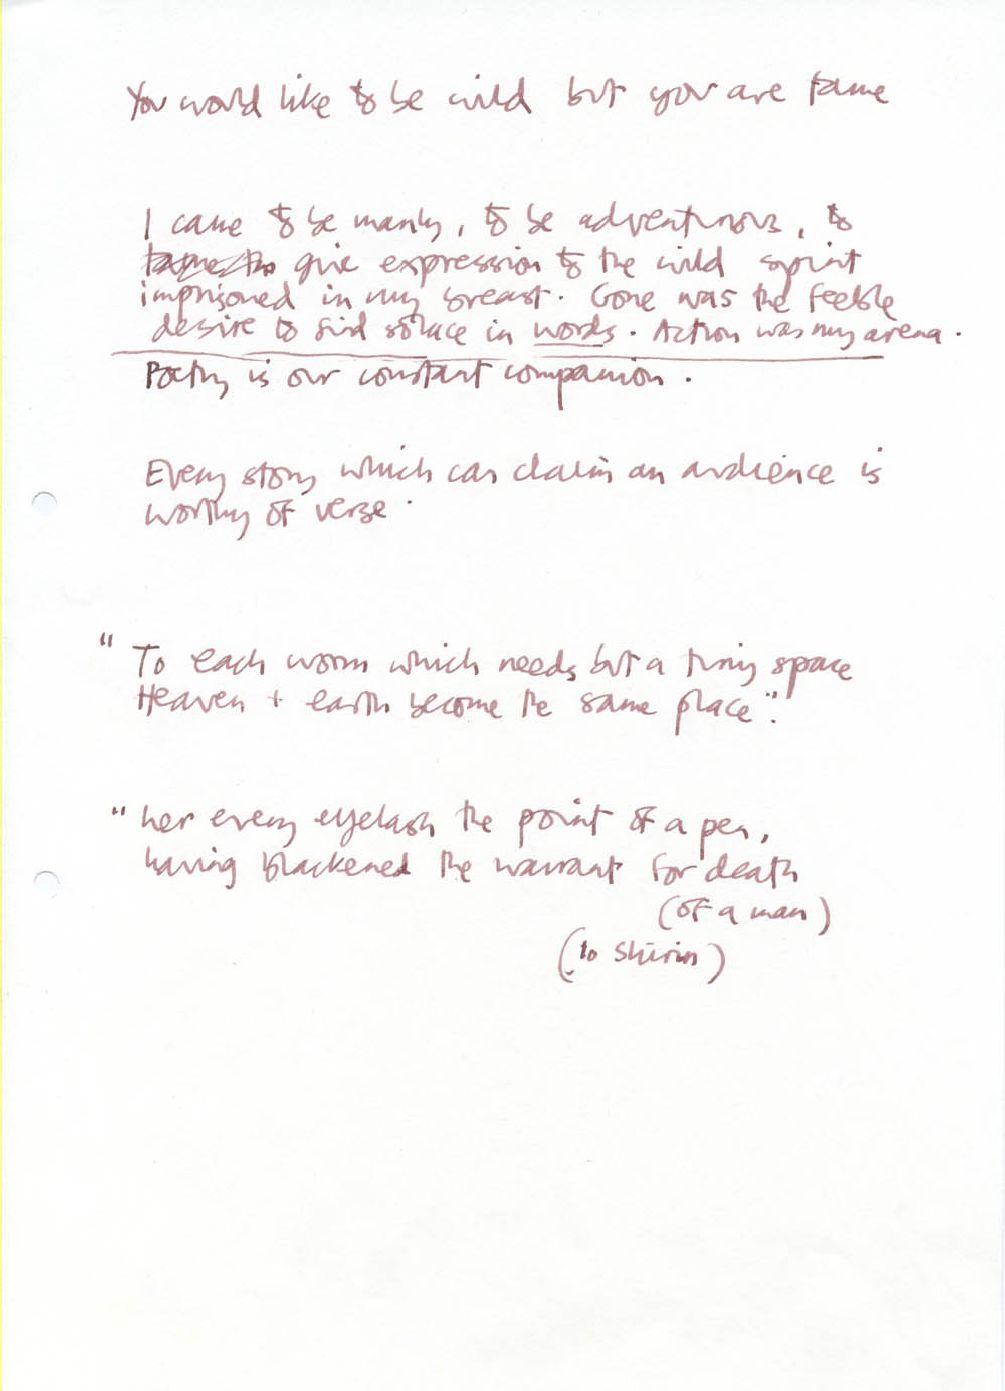 You would like to be wild but you are tame
I came to be manly, to be adventurous, to
tame the give expression to the wild spirit
imprisoned in my breast. Gone was the feeble
desire to find solace in words. Action was my arena.
Poetry is our constant companion.
Every story which can claim an audience is
worthy of verse.
"To each worm which needs but a tiny space
Heaven + earth become the same place".
"her every eyelash the point of a pen,
having blackened the warrant for death
(of a man)
(to Shirin)